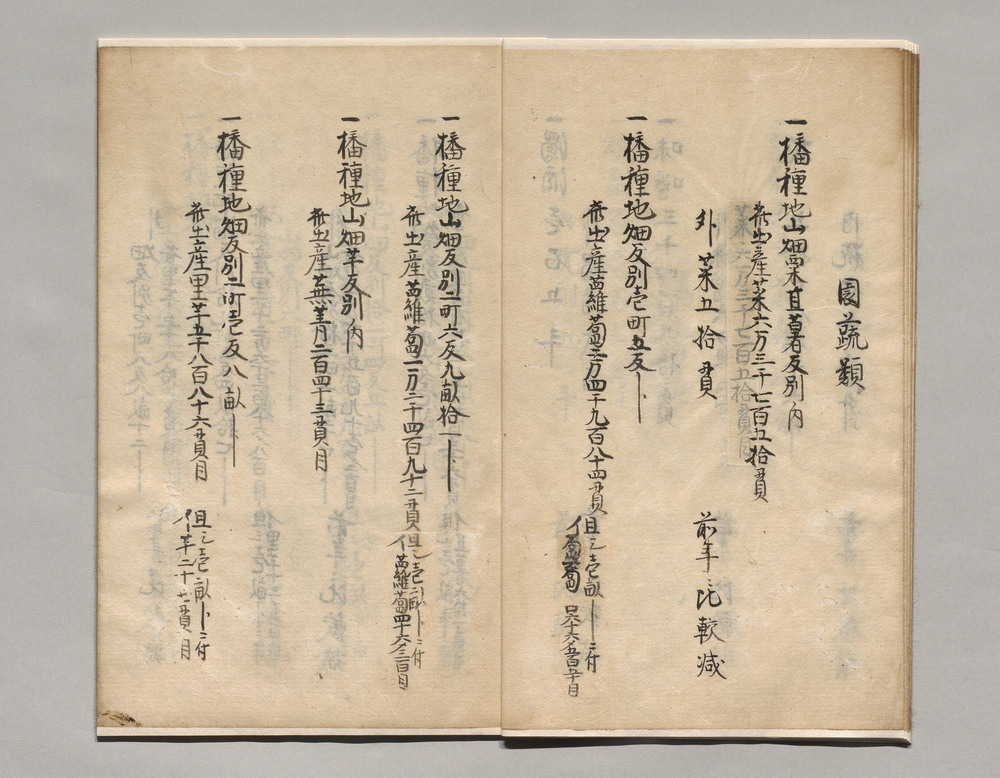 園蔬類
一播種地山畑粟甘薯反別内
産菜六万三千七百五拾貫
外菜五拾貫　前年比較減
一播種地畑反別壱町五反歩
産蘿蔔 万四千九百八十四貫 但シ壱畝歩ニ付
蘿蔔
一播種地山畑反別二町六反九畝拾歩
産蘿蔔一万二千四百九十二貫 但シ壱畝歩ニ付
蘿蔔四十六〆三百目
一播種地山畑芋反別内
産蕪菁二百四十三貫目
一播種地畑反別二町壱反八畝歩
産里芋五千八百八十六貫目 但シ壱畝歩ニ付
芋二十七貫目